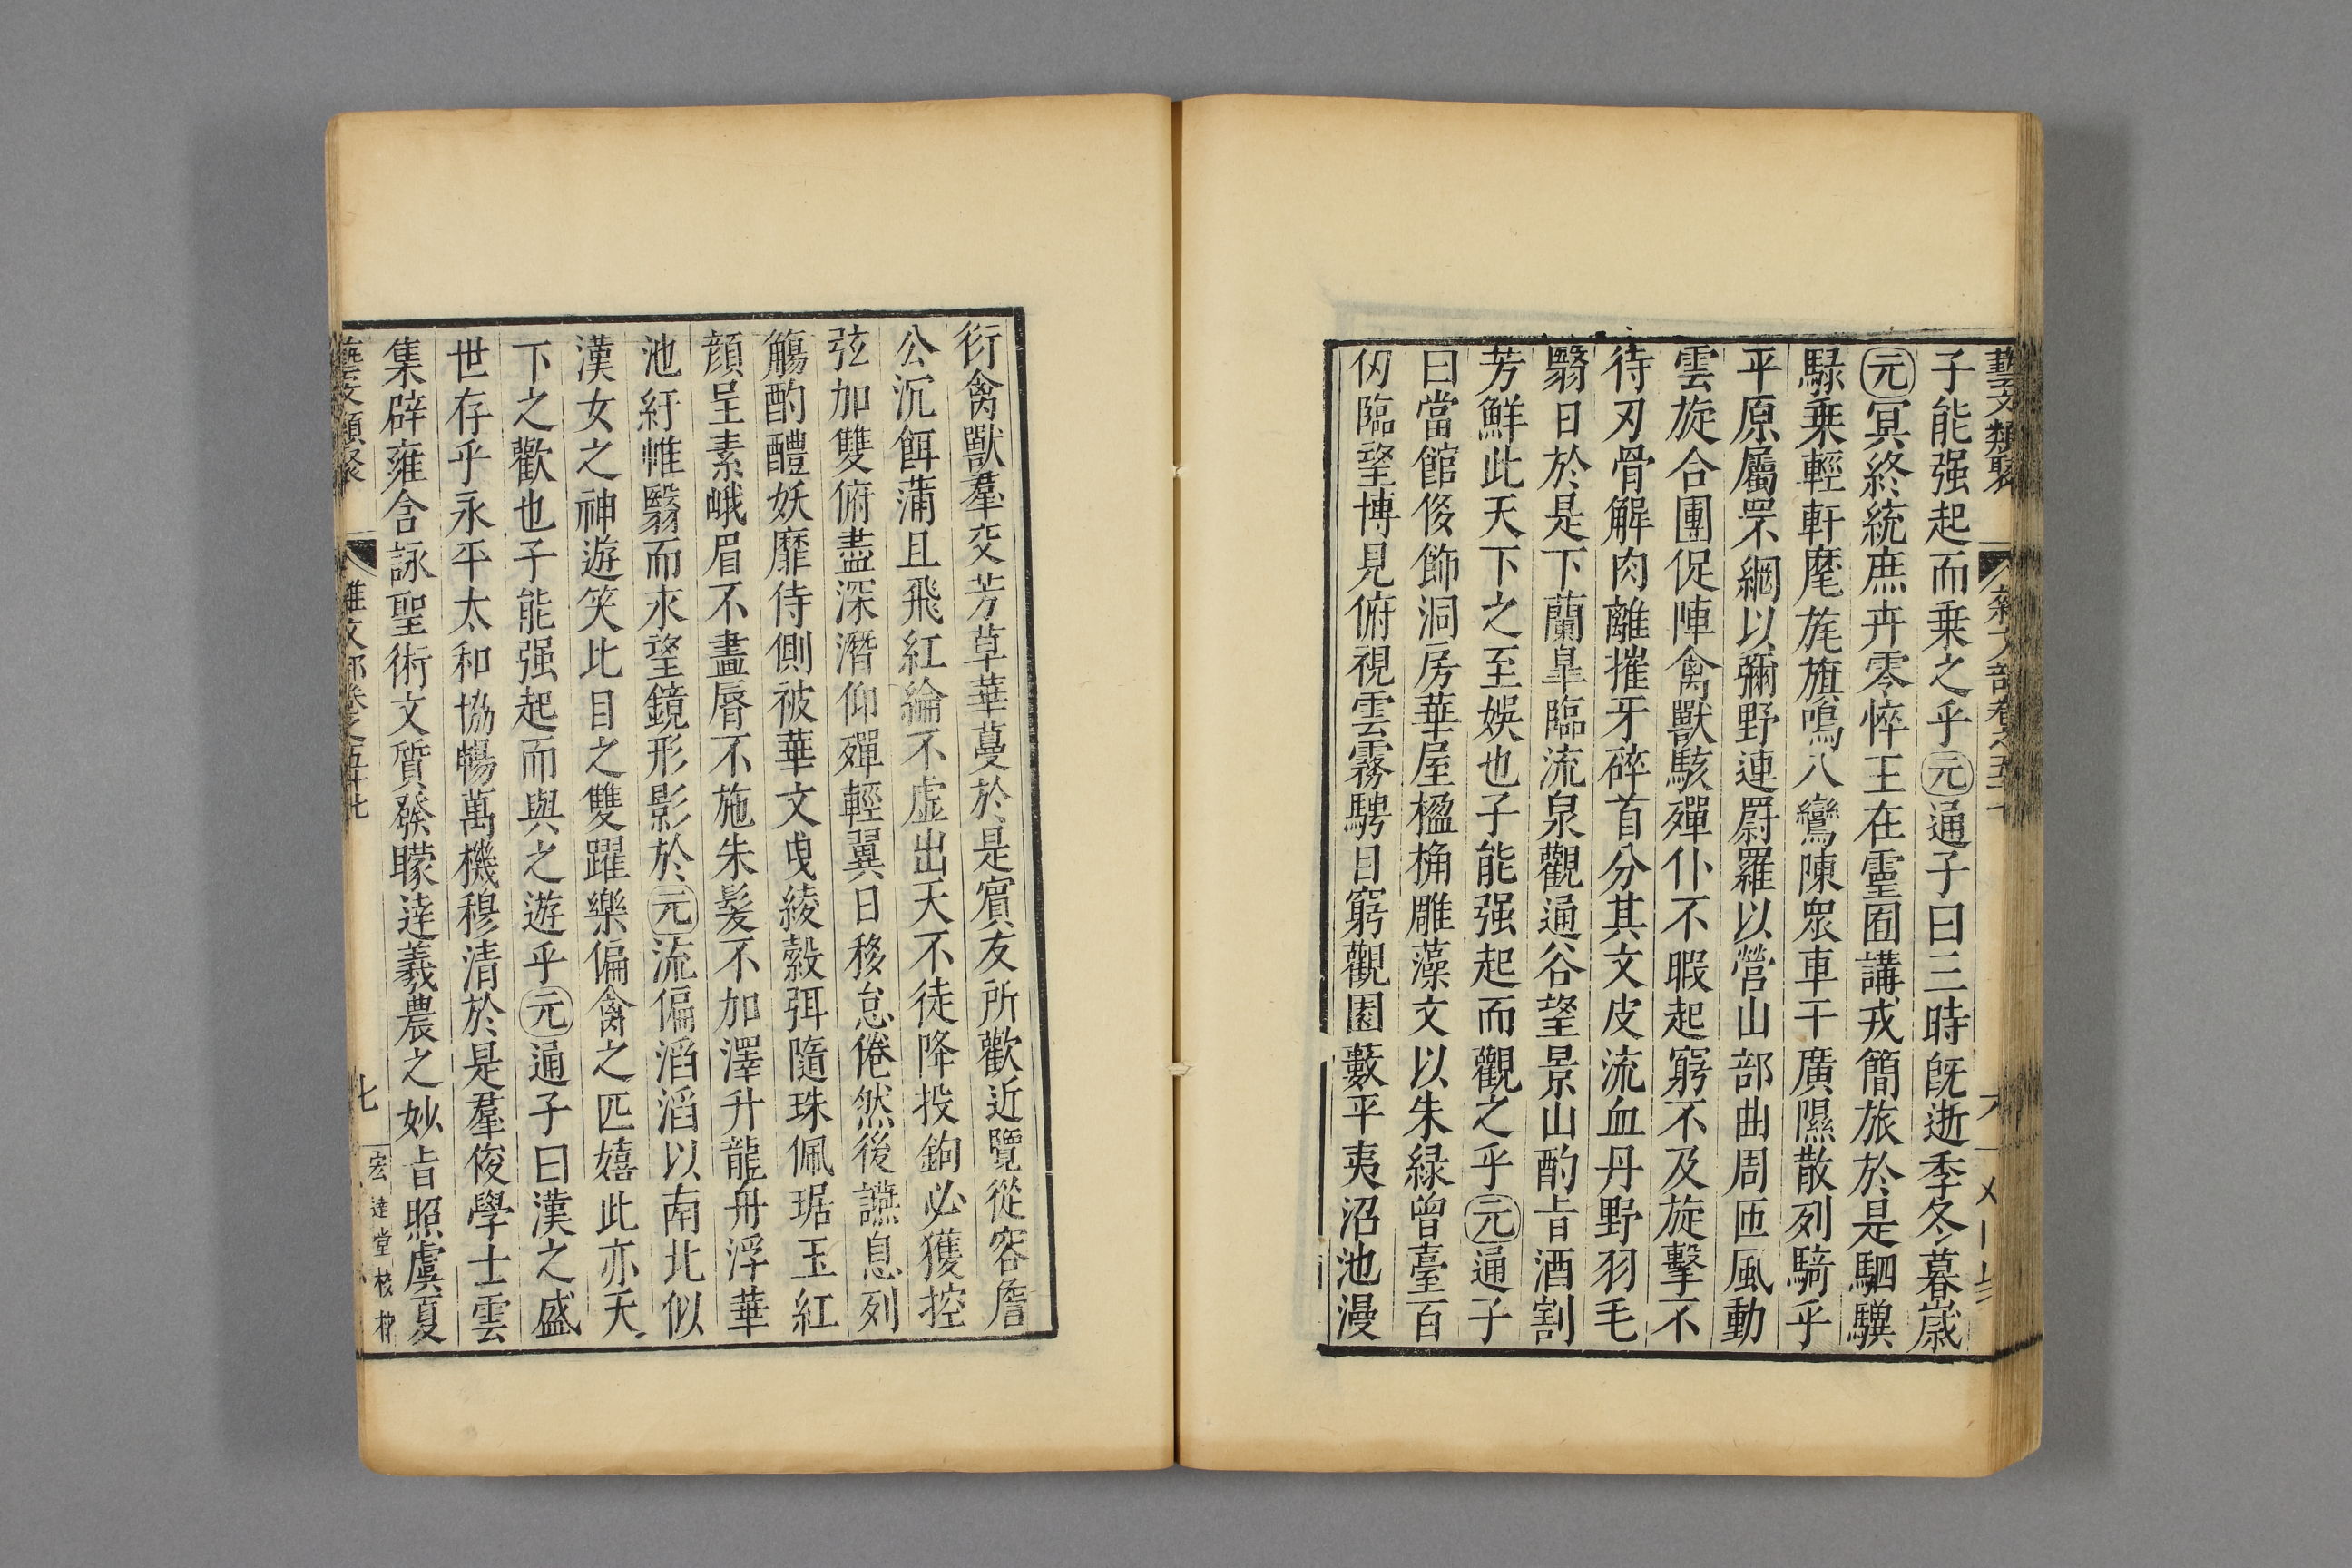 藝文類聚
雜文部卷之五十七
子能强起而乗之乎元通子曰三時旣逝季冬暮嵗
元冥終統庶卉零悴王在靈囿講戎簡旅於是駟驥
騄乗輕軒麾旄旗鳴八鸞陳眾車干廣隰散列騎乎
平原屬罘網以彌野連罻羅以營山部曲周匝風動
雲旋合團促陣禽獸駭殫仆不暇起窮不及旋擊不
待刃骨解肉離摧牙碎首分其文皮流血丹野羽毛
翳日於是下蘭臯臨流泉觀通谷望景山酌旨酒割
芳鮮此天下之至娛也子能强起而觀之乎元通子
曰當館侈飾洞房華屋楹桷雕藻文以朱緑曾臺百
仭臨望博見俯視雲霧騁目窮觀園藪平夷沼池漫
衍禽獸羣交芳草華蔓於是賓友所歡近覽從容詹
公沉餌蒲且飛紅綸不虛出天不徒降投鉤必獲控
弦加雙俯盡深潛仰殫輕翼日移怠倦然後讌息列
觴酌醴妖靡侍側被華文曳綾縠弭隨珠佩琚玉紅
顔呈素峨眉不畫唇不施朱髪不加澤升龍舟浮華
池紆帷翳而永望鏡形影於元流偏滔滔以南北似
漢女之神遊笑比目之雙躍樂偏禽之匹嬉此亦天
下之歡也子能强起而與之遊乎元通子曰漢之盛
世存乎永平太和協暢萬機穆清於是羣俊學士雲
集辟雍含詠聖術文質發矇達羲農之妙旨照虞夏
藝文類聚
雜文部卷之五十七
七
宏達堂校栞